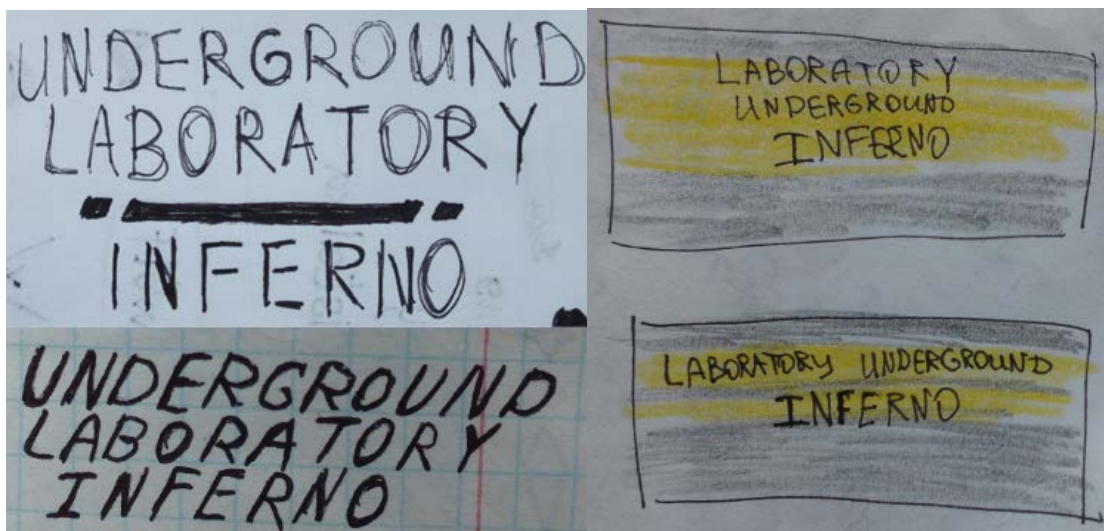 UNDERGROUND
LABORATORY
INFERNO
UNDERGROUND
LABORATORY
INFERNO
LABORATORY
UNDERGROUND
INFERNO
LABORATORY UNDERGROUND
INFERNO